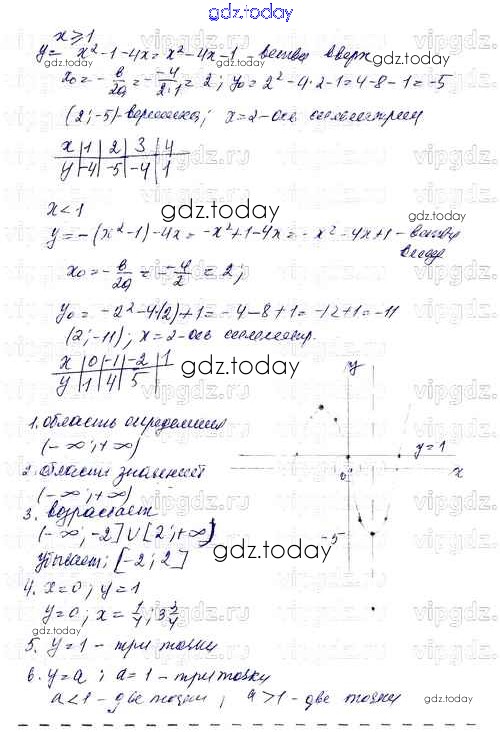 gdz.today
x ≥ 1
y = x² - 1 - 4x = x² - 4x - 1 - ветви вверх
x₀ = - в/2a = - -4/2·1 = 2; y₀ = 2² - 4·2 - 1 = 4 - 8 - 1 = -5
(2; -5) - вершина; x = 2 - ось симметрии
x | 1 | 2 | 3 | 4
y | -4 | -5 | -4 | 1
gdz.today
x < 1
gdz.today
y = -(x² - 1) - 4x = -x² + 1 - 4x = -x² - 4x + 1 - ветви
x₀ = - в/2a = - -4/2 = 2;
y₀ = -2² - 4(2) + 1 = -4 - 8 + 1 = -12 + 1 = -11
(2; -11); x = 2 - ось симметр.
x | 0 | -1 | -2 | 1
y | 1 | 4 | 5
gdz.today
y
1. область определения
(-∞; +∞)
y = 1
x
0
2. область значений
(-∞; +∞)
3. возрастает
(-∞; -2] ∪ [2; +∞)
-5
убывает; [-2; 2]
gdz.today
4. x = 0; y = 1
y = 0; x =
5. y = 1 - три точки
gdz.today
6. y = a; a = 1 - три точки
a < 1 - две точки; a > 1 - две точки
gdz.today
vipgdz.ru